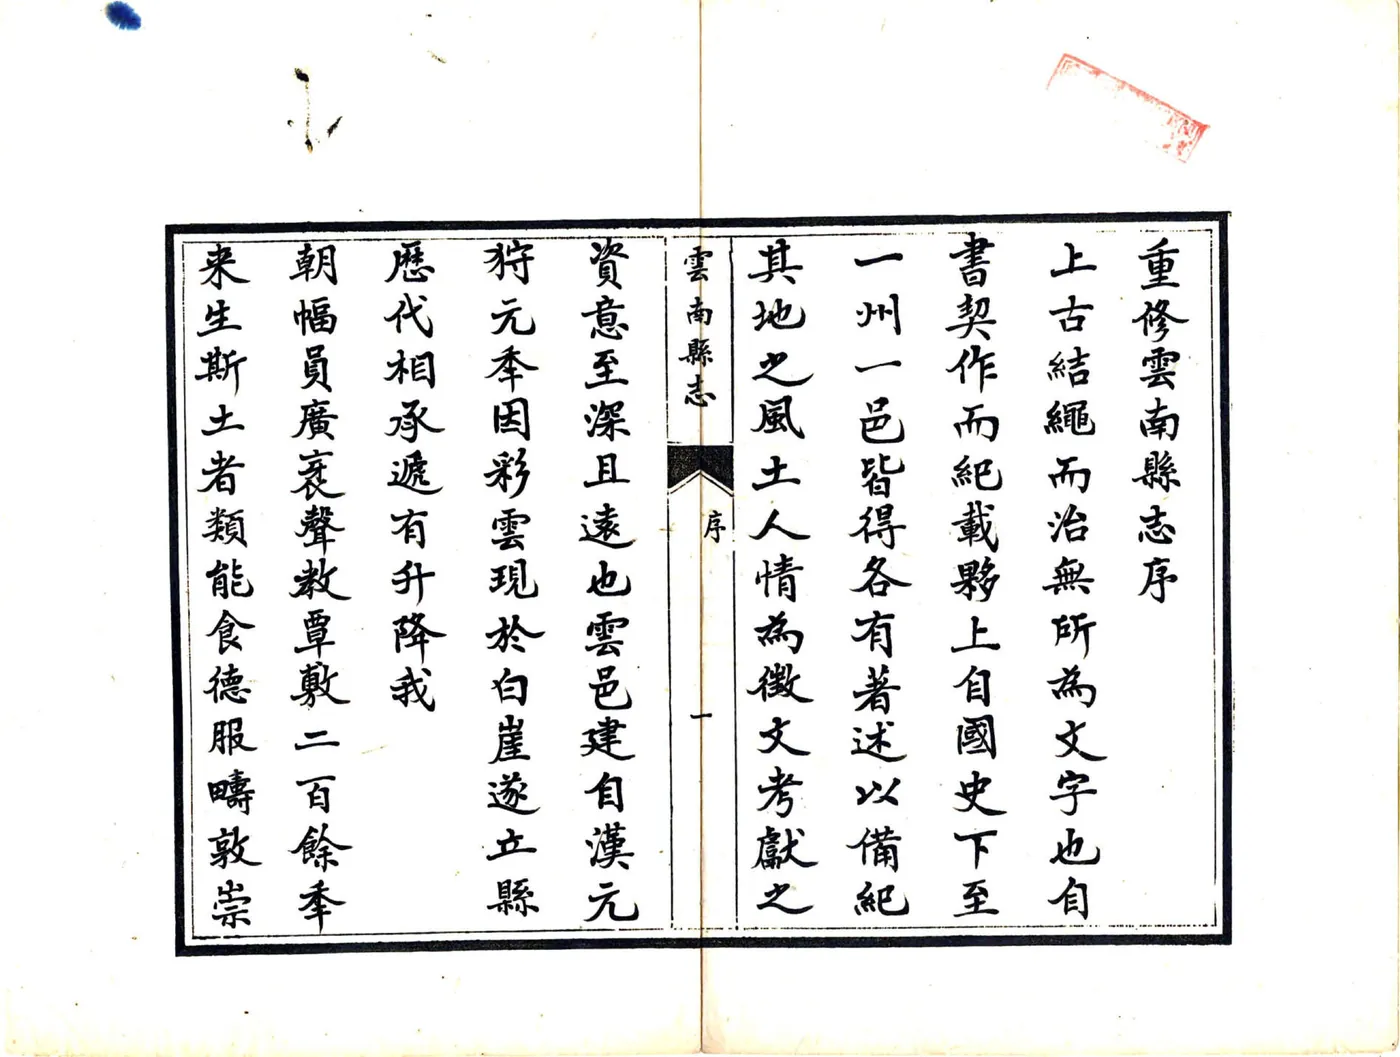 重修雲南縣志序
上古結繩而治無所為文字也自
書契作而紀載夥上自國史下至
一州一邑皆得各有著述以備紀
其地之風土人情為徵文考獻之
雲南縣志
序
一
資意至深且遠也雲邑建自漢元
狩元年因彩雲現於白崖遂立縣
歷代相承遞有升降我
朝幅員廣袤聲教覃敷二百餘年
来生斯土者類能食德服疇敦崇